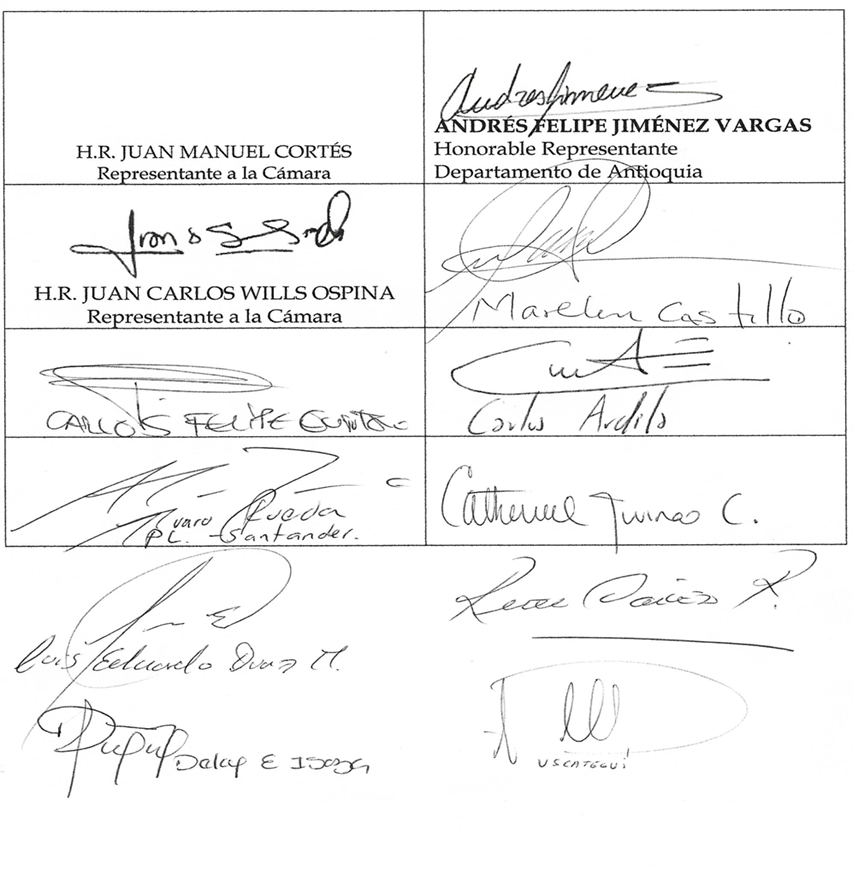 H.R. JUAN MANUEL CORTÉS
Representante a la Cámara
ANDRÉS FELIPE JIMÉNEZ VARGAS
Honorable Representante
Departamento de Antioquia
H.R. JUAN CARLOS WILLS OSPINA
Representante a la Cámara
Marelen Castillo
CARLOS FELIPE
Carlos Ardila
Alvaro Rueda
PL. Santander.
Catherine Juvinao C.
Luis Eduardo Diaz M.
Delcy E Isaza
USCATEGUI